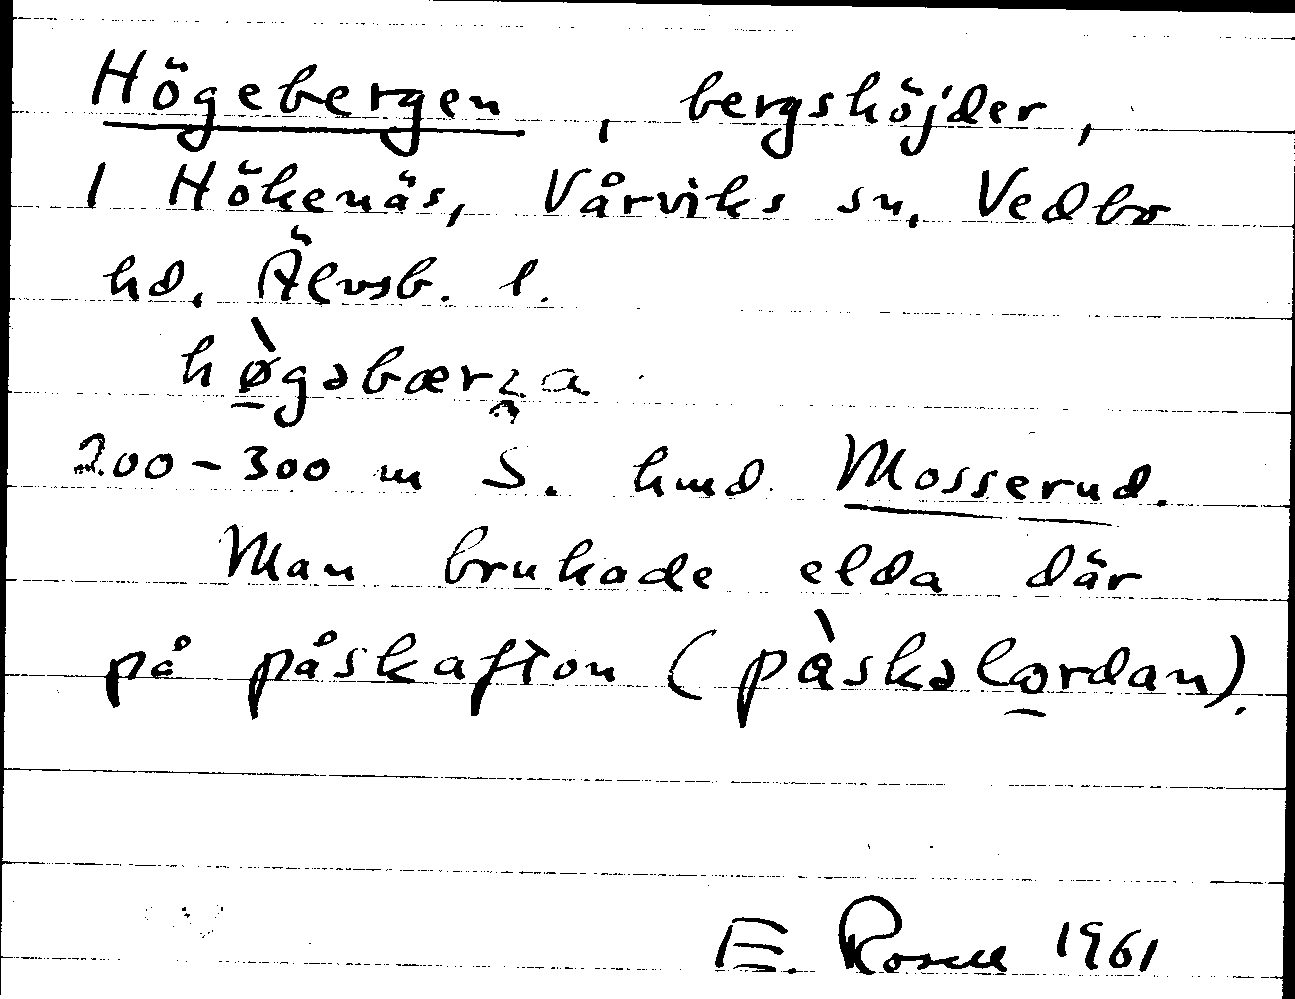 Högebergen, bergshöjder,
1 Hökenäs, Vårviks sn, Vedbo
hd. Älvsb. l.
200-300 m S. hmd Mosserud.
Man brukade elda där
på påskafton (pàskəlørdan).
E. Rosell 1961